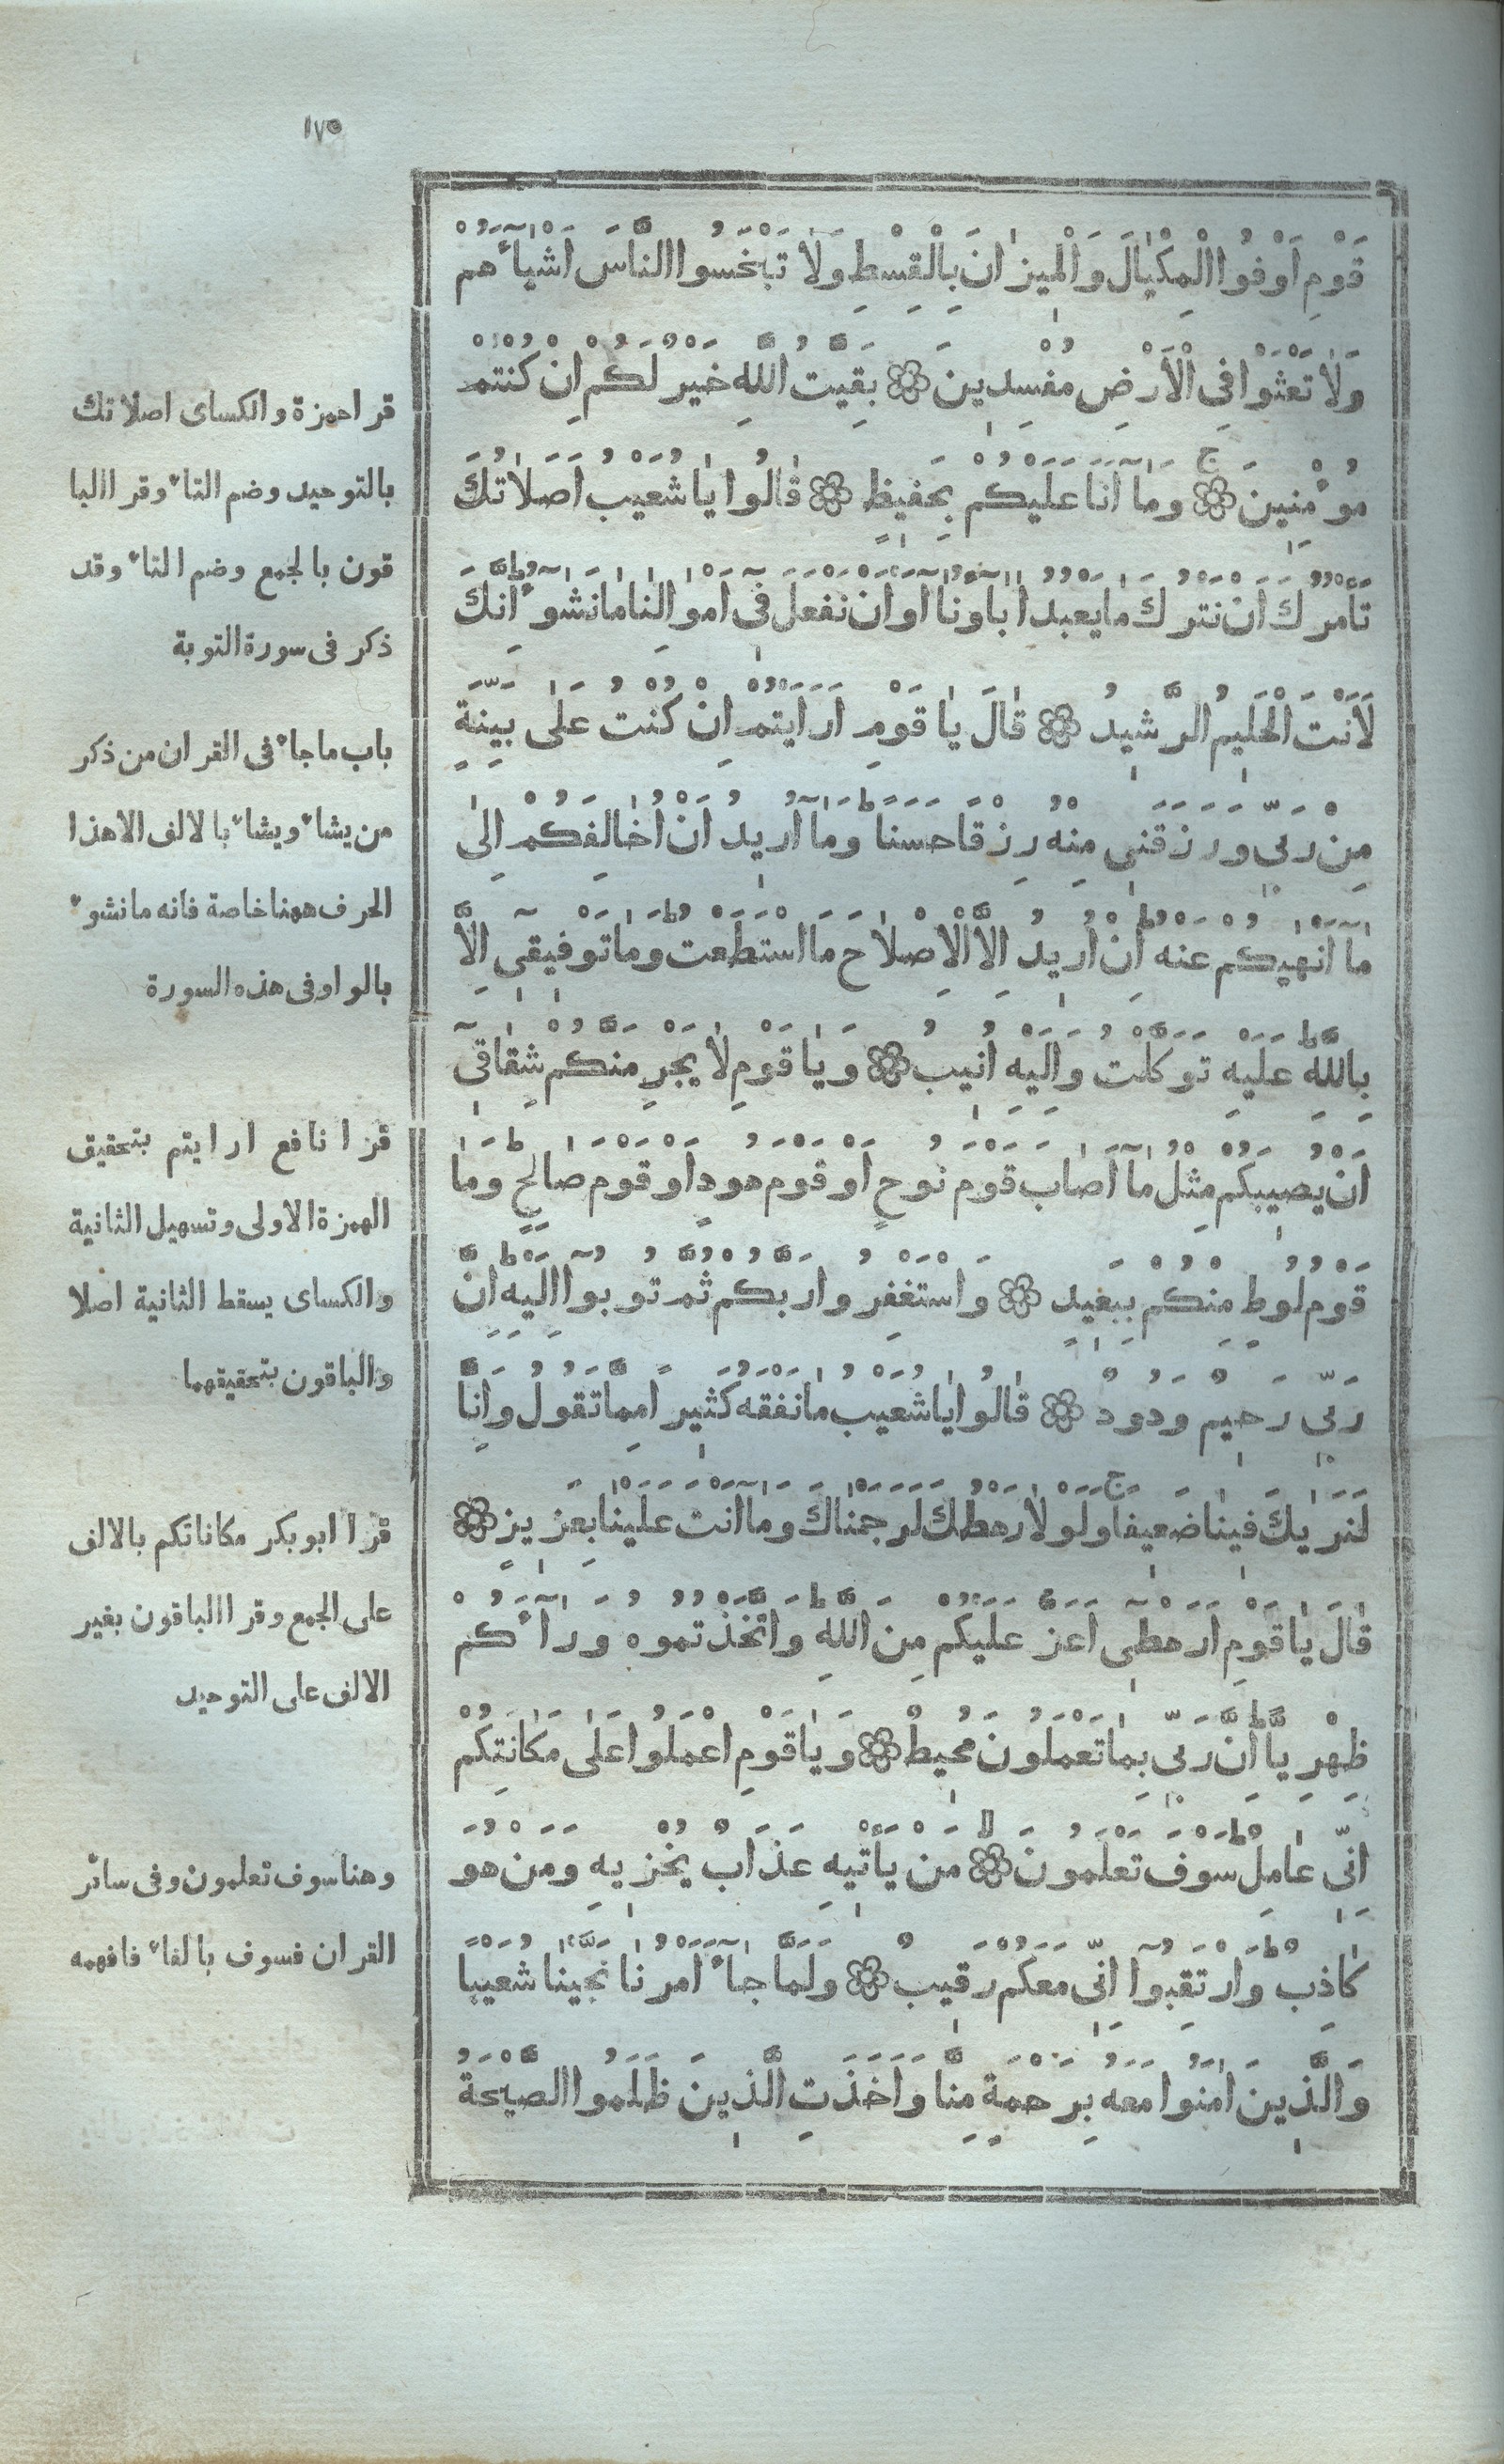 ١٧٥
قَوْمِ اَوْفُوا الْمِكْيٰالَ وَالْمٖيزٰانَ بِالْقِسْطِ وَلاٰ تَبْخَسُوا النّٰاسَ اَشْيٰآءَهُمْ
وَلاٰ تَعْثَوْا فِى الْاَرْضِ مُفْسِدٖينَ ۞ بَقِيَّتُ اللّٰهِ خَيْرٌ لَكُمْ اِنْ كُنْتُمْ
مُؤْمِنٖينَ ۞ۚ وَمٰآ اَنَا عَلَيْكُمْ بِحَفٖيظٍ ۞ قٰالُوا يٰا شُعَيْبُ اَصَلاٰتُكَ
تَأْمُرُكَ اَنْ نَتْرُكَ مٰا يَعْبُدُ اٰبٰآؤُنٰآ اَوْ اَنْ نَفْعَلَ فٖٓى اَمْوٰالِنٰا مٰا نَشٰٓؤُا ؕ اِنَّكَ
لَاَنْتَ الْحَلٖيمُ الرَّشٖيدُ ۞ قٰالَ يٰا قَوْمِ اَرَاَيْتُمْ اِنْ كُنْتُ عَلٰى بَيِّنَةٍ
مِنْ رَبّٖى وَرَزَقَنٖى مِنْهُ رِزْقًا حَسَنًا ؕ وَمٰآ اُرٖيدُ اَنْ اُخٰالِفَكُمْ اِلىٰ
مٰآ اَنْهٰيكُمْ عَنْهُ ؕ اِنْ اُرٖيدُ اِلاَّ الْاِصْلاٰحَ مَا اسْتَطَعْتُ ؕ وَمٰا تَوْفٖيقٖٓى اِلاَّ
بِاللّٰهِ ؕ عَلَيْهِ تَوَكَّلْتُ وَاِلَيْهِ اُنٖيبُ ۞ وَيٰا قَوْمِ لاٰ يَجْرِمَنَّكُمْ شِقٰاقٖٓى
اَنْ يُصٖيبَكُمْ مِثْلُ مٰآ اَصٰابَ قَوْمَ نُوحٍ اَوْ قَوْمَ هُودٍ اَوْ قَوْمَ صٰالِحٍ ؕ وَمٰا
قَوْمُ لُوطٍ مِنْكُمْ بِبَعٖيدٍ ۞ وَاسْتَغْفِرُوا رَبَّكُمْ ثُمَّ تُوبُوٓا اِلَيْهِ ؕ اِنَّ
رَبّٖى رَحٖيمٌ وَدُودٌ ۞ قٰالُوا يٰا شُعَيْبُ مٰا نَفْقَهُ كَثٖيرًا مِمّٰا تَقُولُ وَاِنّٰا
لَنَرٰيكَ فٖينٰا ضَعٖيفًا ۚ وَلَوْلاٰ رَهْطُكَ لَرَجَمْنٰاكَ وَمٰآ اَنْتَ عَلَيْنٰا بِعَزٖيزٍ ۞
قٰالَ يٰا قَوْمِ اَرَهْطٖٓى اَعَزُّ عَلَيْكُمْ مِنَ اللّٰهِ ؕ وَاتَّخَذْتُمُوهُ وَرٰآءَكُمْ
ظِهْرِيًّا ؕ اِنَّ رَبّٖى بِمٰا تَعْمَلُونَ مُحٖيطٌ ۞ وَيٰا قَوْمِ اعْمَلُوا عَلٰى مَكٰانَتِكُمْ
اِنّٖى عٰامِلٌ ؕ سَوْفَ تَعْلَمُونَ ۞ۙ مَنْ يَأْتٖيهِ عَذَابٌ يُخْزٖيهِ وَمَنْ هُوَ
كٰاذِبٌ ؕ وَارْتَقِبُوٓا اِنّٖى مَعَكُمْ رَقٖيبٌ ۞ وَلَمّٰا جٰآءَ اَمْرُنٰا نَجَّيْنٰا شُعَيْبًا
وَالَّذٖينَ اٰمَنُوا مَعَهُ بِرَحْمَةٍ مِنّٰا وَاَخَذَتِ الَّذٖينَ ظَلَمُوا الصَّيْحَةُ
قرا حمزة والكساى اصلاتك
بالتوحيد وضم التاء وقرا البا
قون بالجمع وضم التاء وقد
ذكر فى سورة التوبة
باب ما جاء فى القران من ذكر
من يشاء ويشاء بالالف الا هذا
الحرف ههنا خاصة فانه ما نشوء
بالواو فى هذه السورة
قرا نافع ارايتم بتحقيق
الهمزة الاولى وتسهيل الثانية
والكساى يسقط الثانية اصلا
والباقون بتحقيقهما
قرا ابو بكر مكاناتكم بالالف
على الجمع وقرا الباقون بغير
الالف على التوحيد
وهنا سوف تعلمون وفى سائر
القران فسوف بالفاء فافهمه